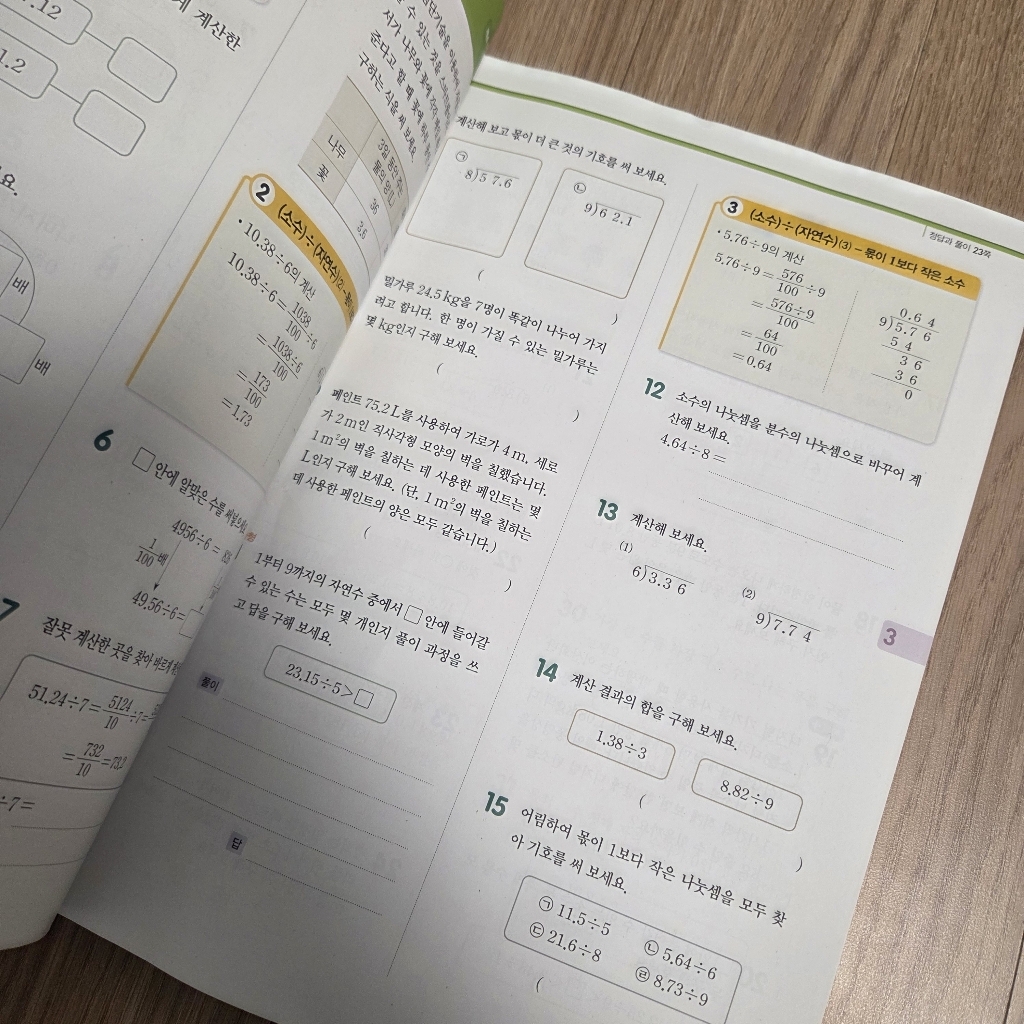 .12
1.2
계산한
요.
배
배
나무
꽃
36
3.6
구하는 식을 써 보세요.
2 (소수)÷(자연수)(2)
• 10.38÷6의 계산
10.38÷6 = 1038/100 ÷6
= 1038÷6/100
= 173/100
= 1.73
6 □ 안에 알맞은 수를 써넣으
4956÷6 =
1/100 배
49.56÷6=
7 잘못 계산한 곳을 찾아 바르게
51.24÷7 = 5124/10 ÷7 =
= 732/10 = 73.2
÷7 =
계산해 보고 몫이 더 큰 것의 기호를 써 보세요.
㉠ 8)57.6
㉡ 9)62.1
( )
밀가루 24.5 kg을 7명이 똑같이 나누어 가지
려고 합니다. 한 명이 가질 수 있는 밀가루는
몇 kg인지 구해 보세요.
( )
페인트 75.2 L를 사용하여 가로가 4 m, 세로
가 2 m인 직사각형 모양의 벽을 칠했습니다.
1 m²의 벽을 칠하는 데 사용한 페인트는 몇
L인지 구해 보세요. (단, 1 m²의 벽을 칠하는
데 사용한 페인트의 양은 모두 같습니다.)
( )
1부터 9까지의 자연수 중에서 □ 안에 들어갈
수 있는 수는 모두 몇 개인지 풀이 과정을 쓰
고 답을 구해 보세요.
23.15÷5>□
풀이
답
정답과 풀이 23쪽
3 (소수)÷(자연수)(3) – 몫이 1보다 작은 소수
• 5.76÷9의 계산
5.76÷9 = 576/100 ÷9
= 576÷9/100
= 64/100
= 0.64
0.64
9)5.76
54
36
36
0
12 소수의 나눗셈을 분수의 나눗셈으로 바꾸어 계
산해 보세요.
4.64÷8=
13 계산해 보세요.
(1) 6)3.36
(2) 9)7.74
3
14 계산 결과의 합을 구해 보세요.
1.38÷3
8.82÷9
( )
15 어림하여 몫이 1보다 작은 나눗셈을 모두 찾
아 기호를 써 보세요.
㉠ 11.5÷5 ㉡ 5.64÷6
㉢ 21.6÷8 ㉣ 8.73÷9
(